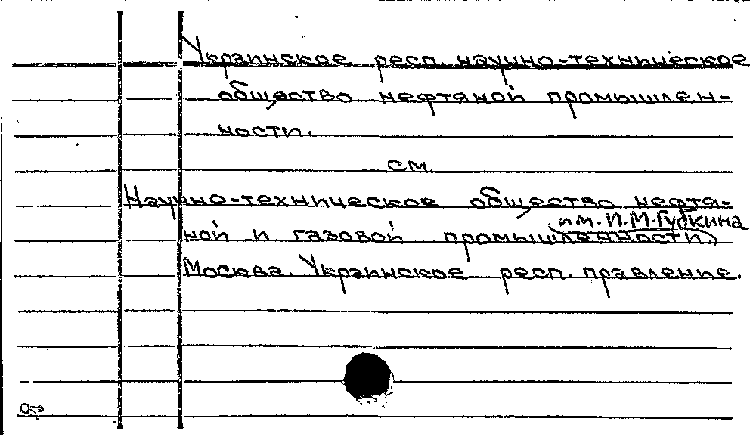 Украинское респ. научно-техническое
общество нефтяной промышлен-
ности.
см.
Научно-техническое общество нефтя-
им. И.М. Губкина
ной и газовой промышленности.
Москва. Украинское респ. правление.